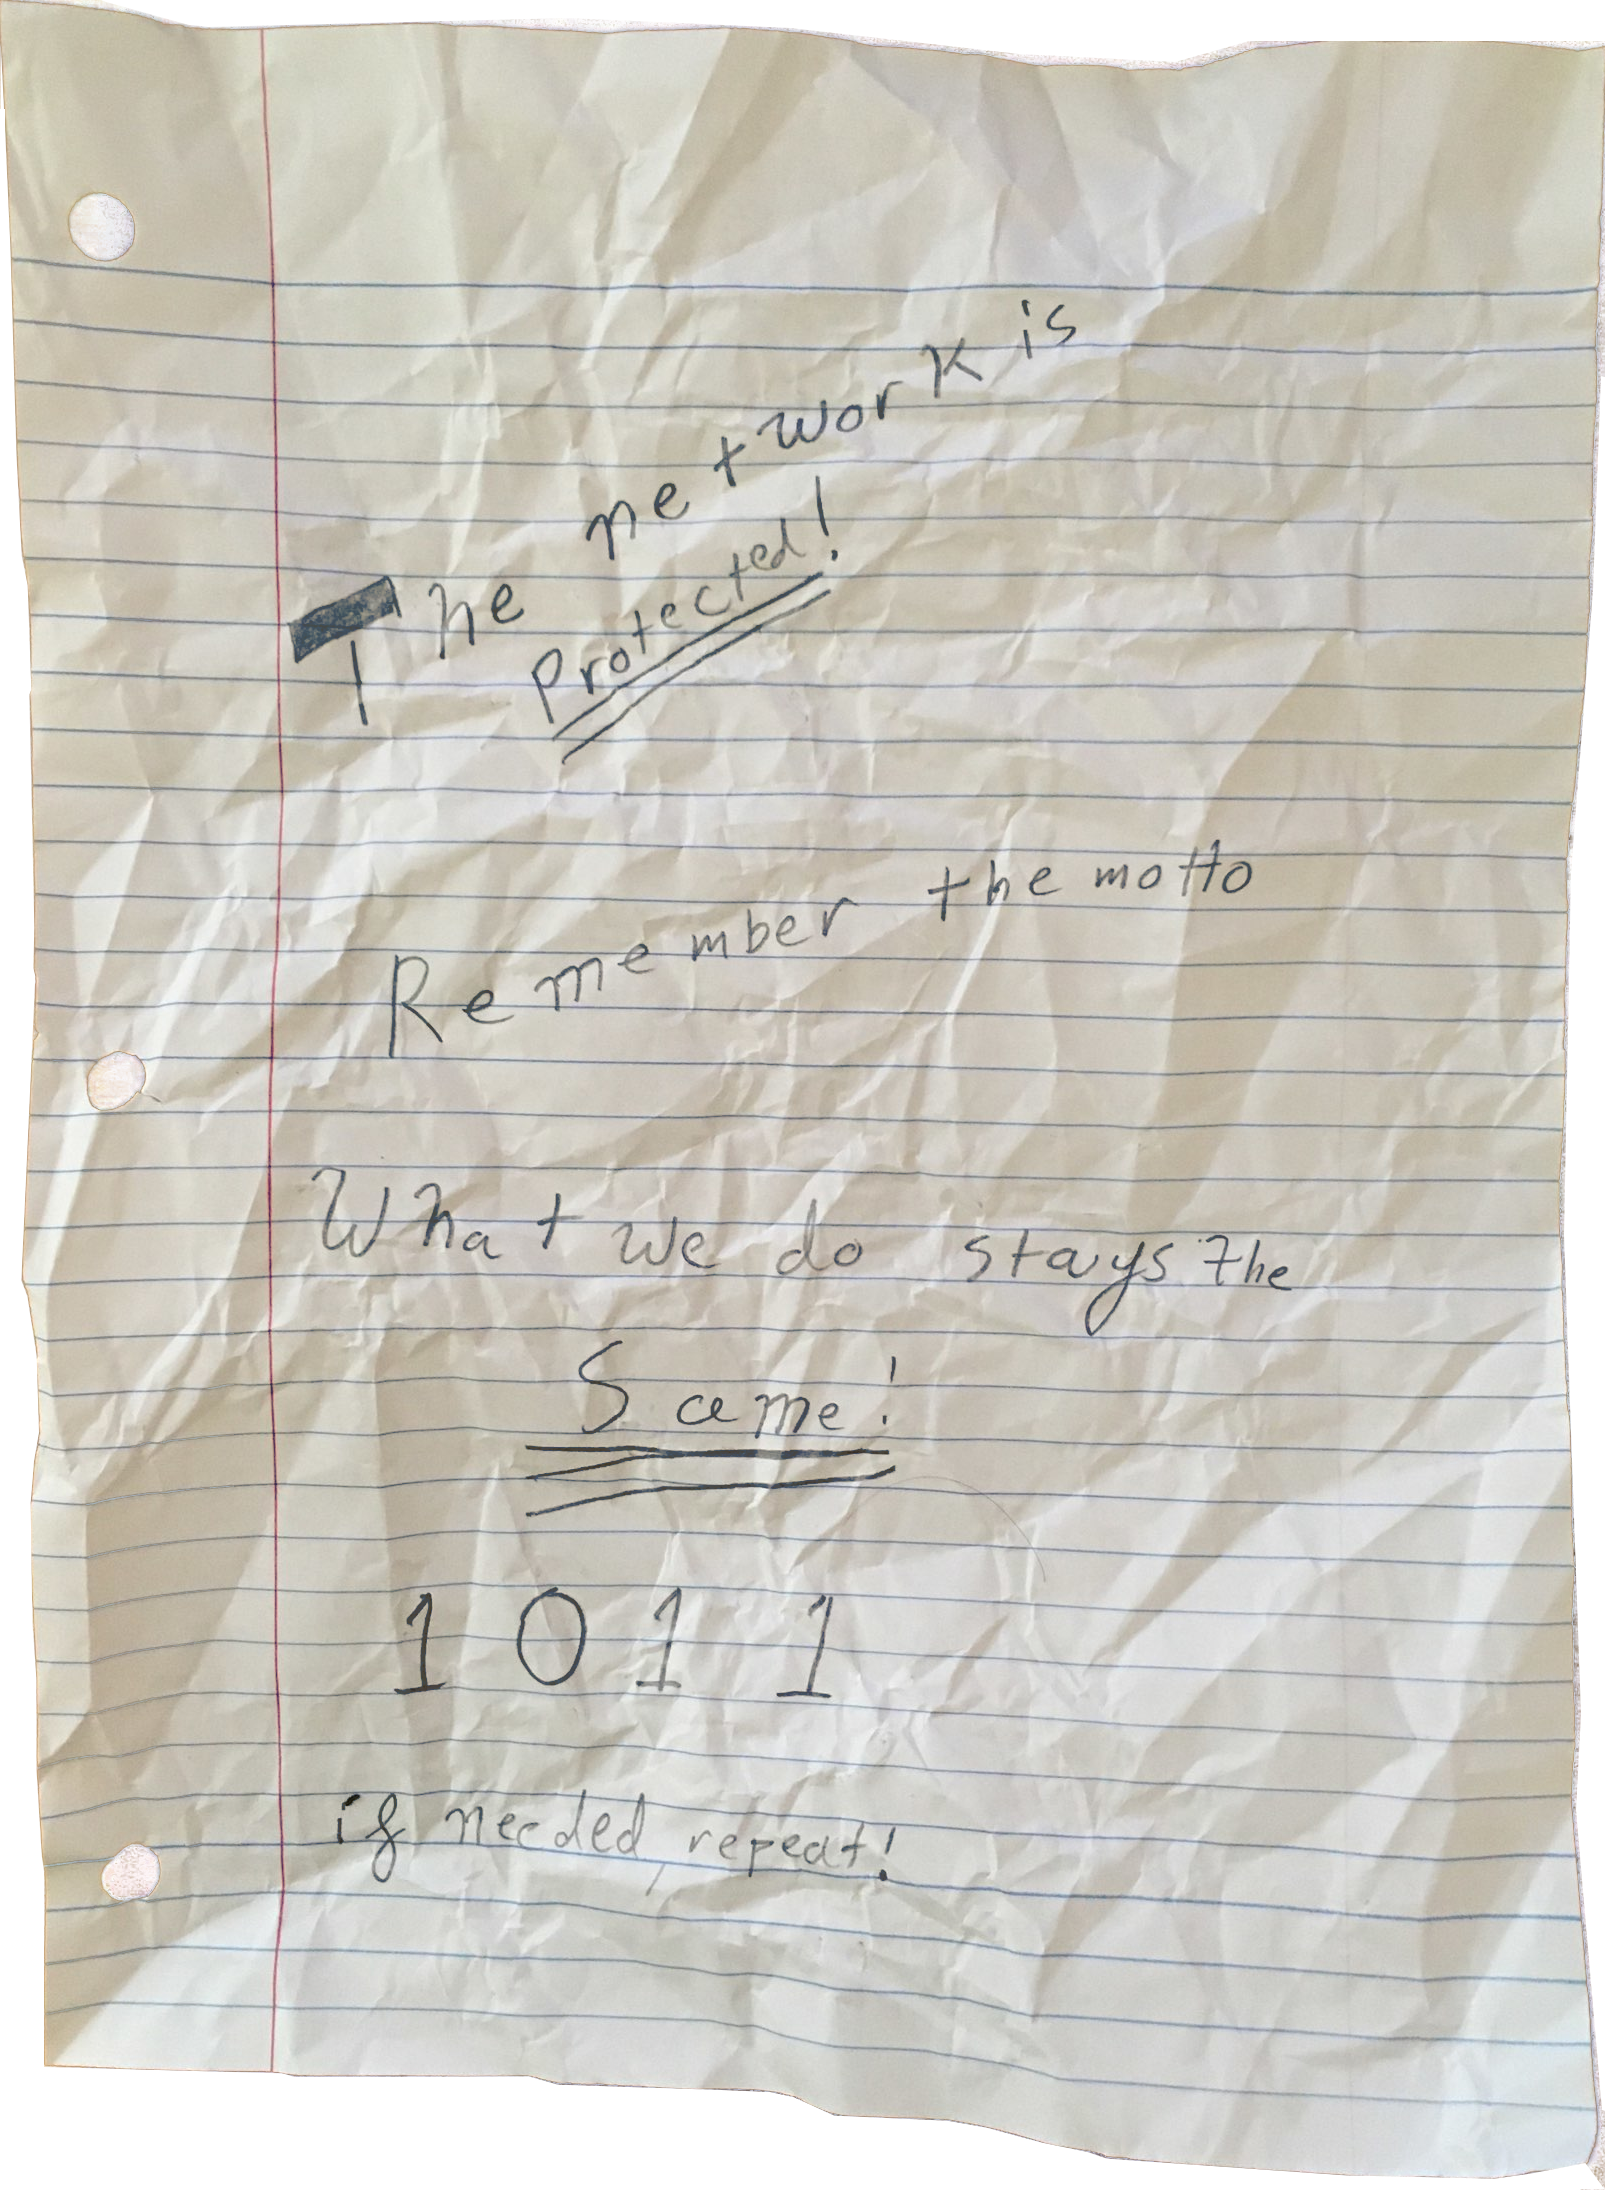 The network is
Protected!
Remember the motto
What we do stays the
Same!
1011
if needed, repeat!